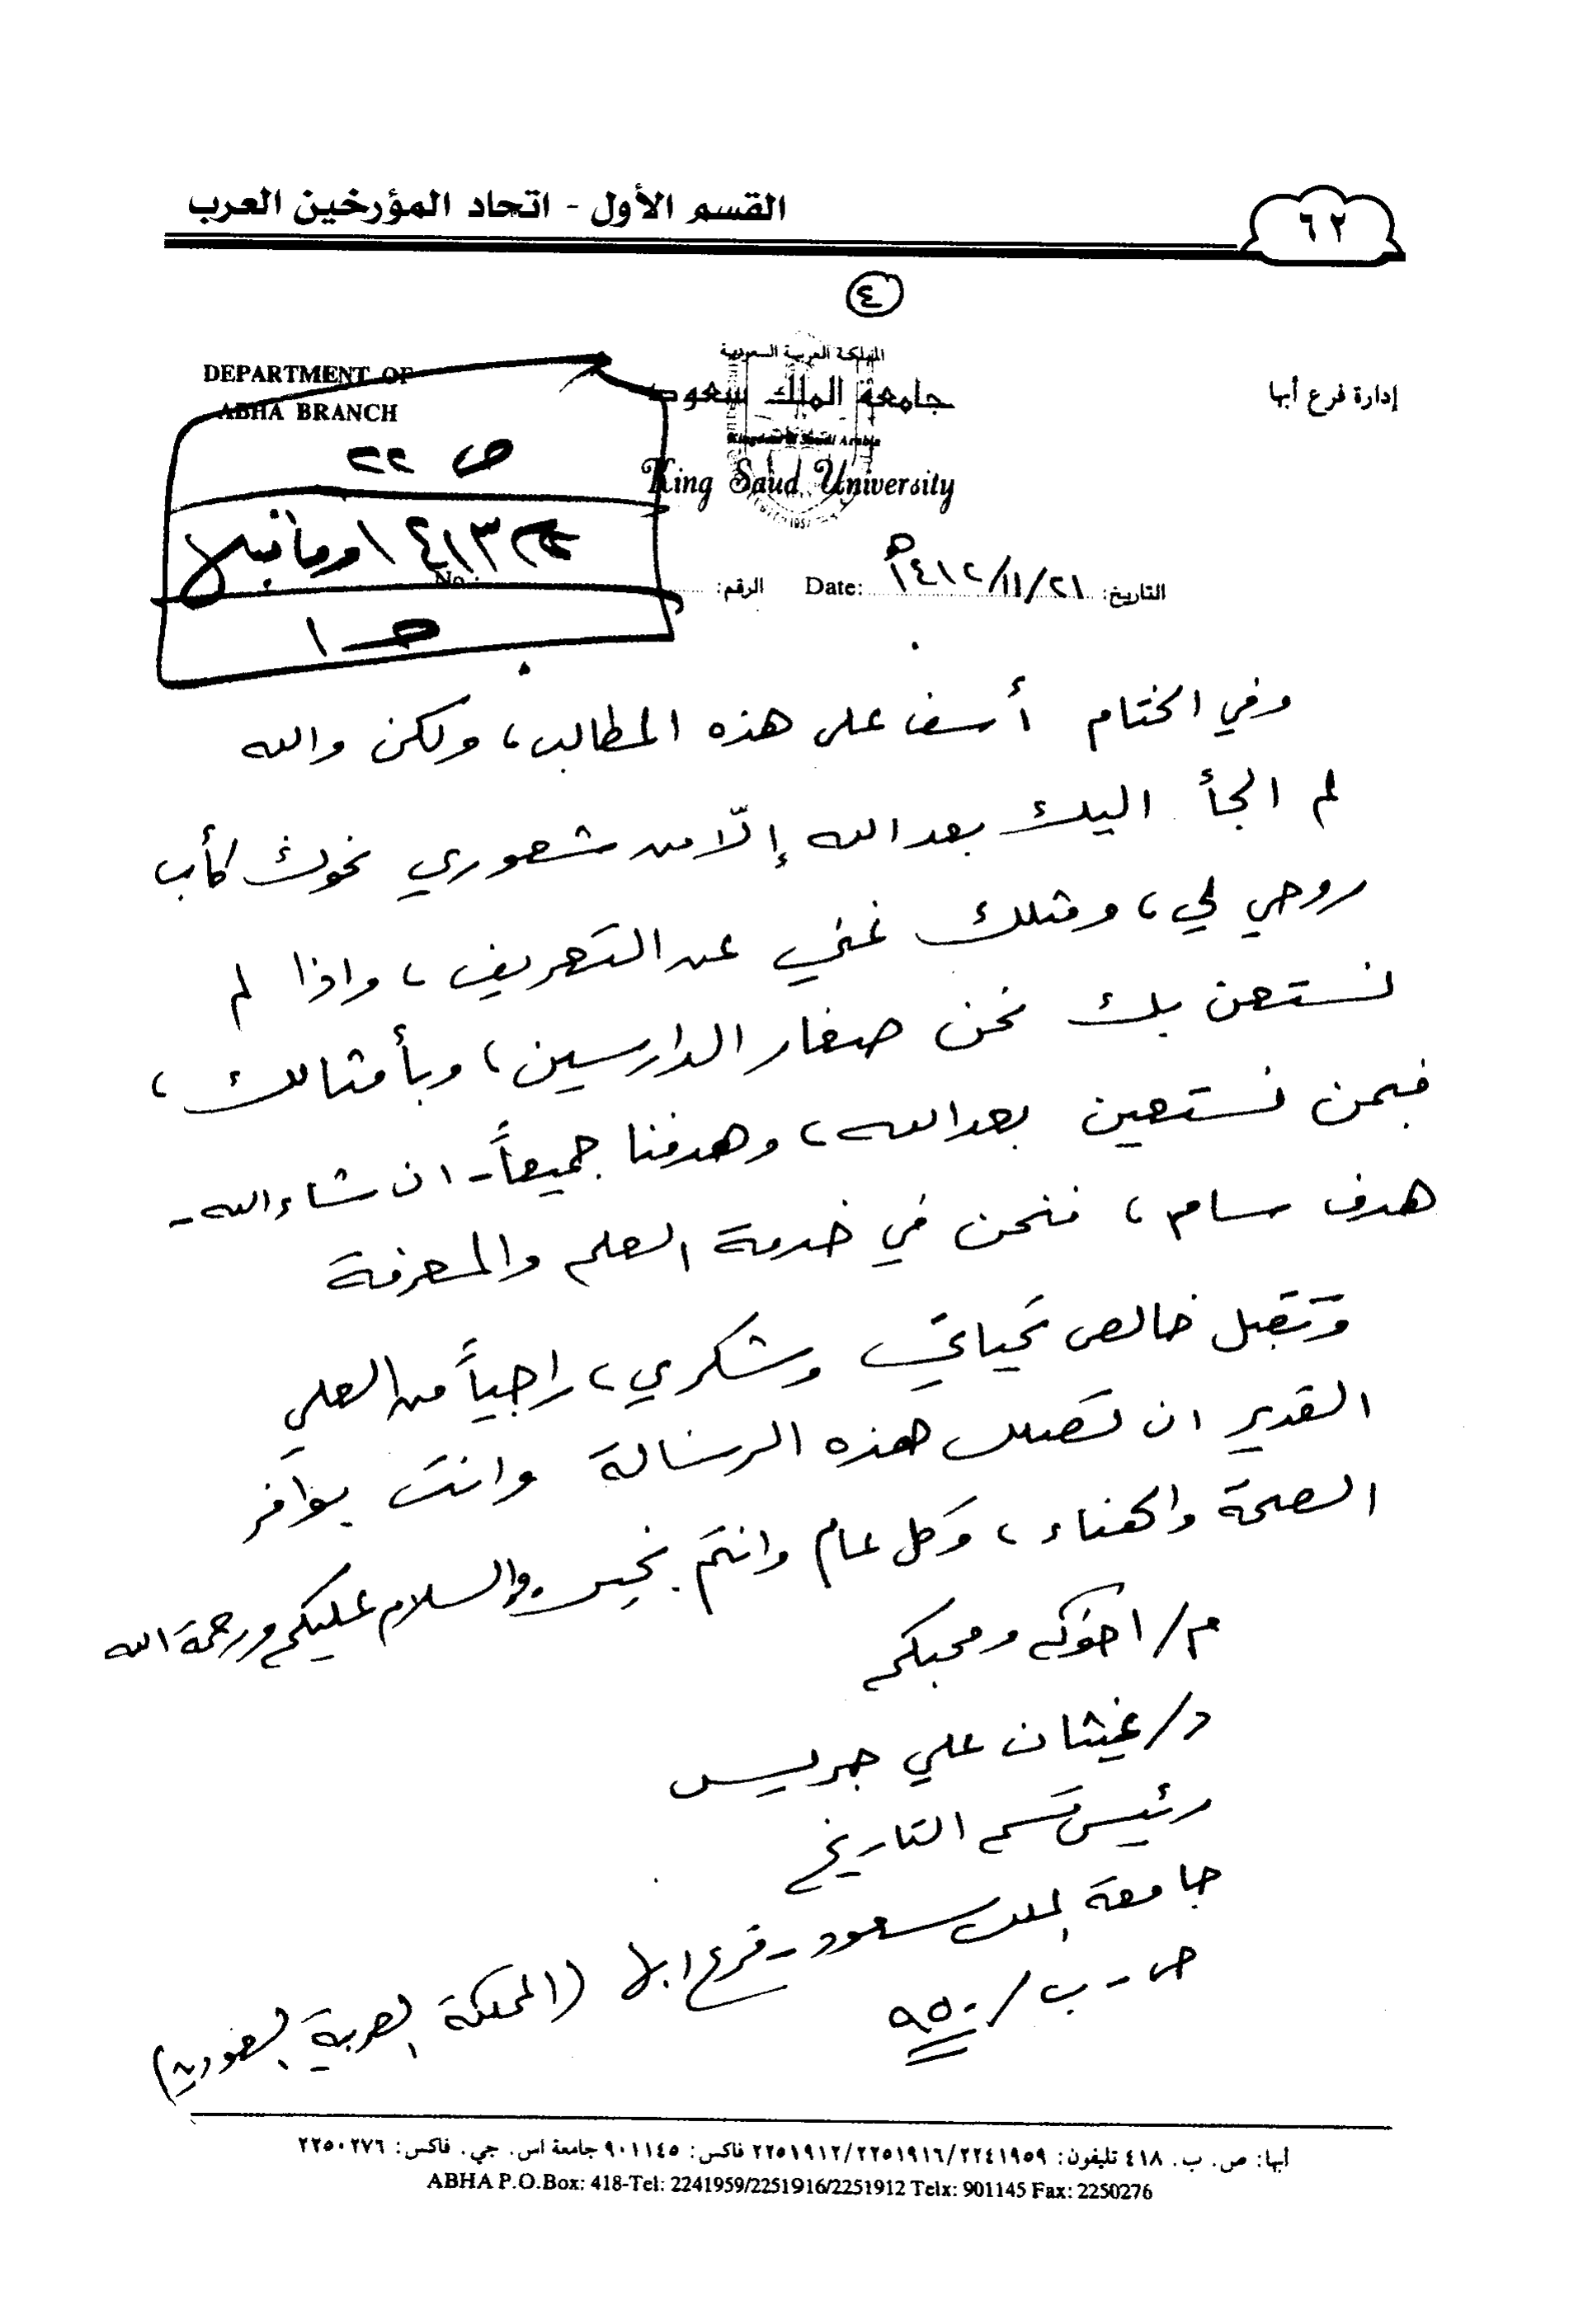 القسم الأول - اتحاد المؤرخين العرب
٦٢
٤
إدارة فرع أبها
المملكة العربية السعودية
جامعة الملك سعود
Kingdom of Saudi Arabia
King Saud University
1957
DEPARTMENT OF
ABHA BRANCH
ص ٢٢
١٤١٣ وما قبلا
ص ١
التاريخ: ١٤١٢/١١/٢١هـ Date: الرقم: No.:
وفي الختام أسف على هذه المطالب، ولكن والله
لم الجأ اليك بعد الله إلّا من شعوري نحوك كأب
روحي لي، ومثلك غني عن التعريف، واذا لم
نستعن بك نحن صغار الدارسين، وبأمثالك،
فبمن نستعين بعد الله، وهدفنا جميعاً - ان شاء الله -
هدف سام، فنحن في خدمة العلم والمعرفة
وتقبل خالص تحياتي وشكري، راجياً من العلي
القدير ان تصلك هذه الرسالة وانت بوافر
الصحة والهناء، وكل عام وانتم بخير. والسلام عليكم ورحمة الله
م/ اخوكم ومحبكم
د/ غيثان علي جريس
رئيس قسم التاريخ
جامعة الملك سعود - فرع ابها (المملكة العربية السعودية)
ص - ب / ٩٥٠
أبها: ص. ب. ٤١٨ تليفون: ٢٢٤١٩٥٩/٢٢٥١٩١٦/٢٢٥١٩١٢ فاكس: ٩٠١١٤٥ جامعة اس. جي. فاكس: ٢٢٥٠٢٧٦
ABHA P.O.Box: 418-Tel: 2241959/2251916/2251912 Telx: 901145 Fax: 2250276